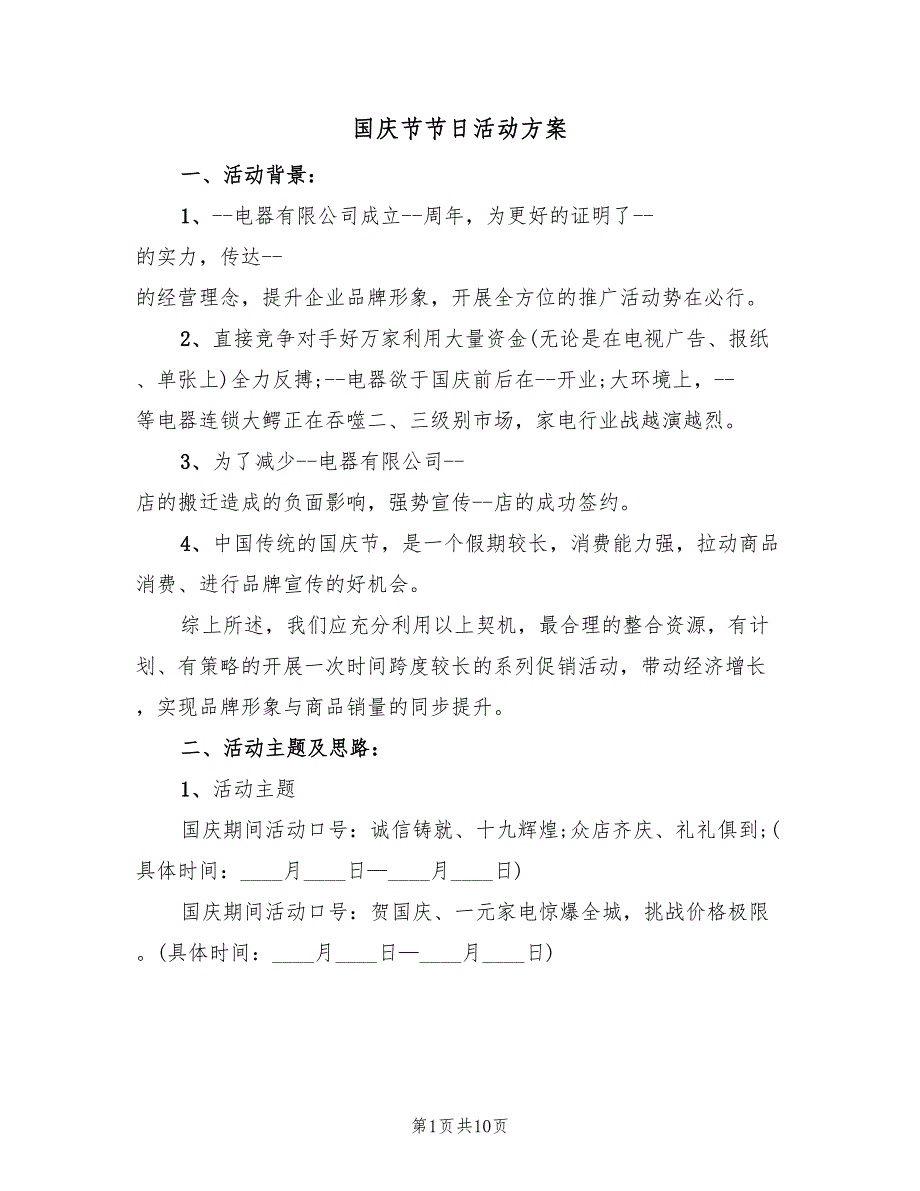 国庆节节日活动方案
一、活动背景：
1、--电器有限公司成立--周年，为更好的证明了--
的实力，传达--
的经营理念，提升企业品牌形象，开展全方位的推广活动势在必行。
2、直接竞争对手好万家利用大量资金(无论是在电视广告、报纸
、单张上)全力反搏;--电器欲于国庆前后在--开业;大环境上，--
等电器连锁大鳄正在吞噬二、三级别市场，家电行业战越演越烈。
3、为了减少--电器有限公司--
店的搬迁造成的负面影响，强势宣传--店的成功签约。
4、中国传统的国庆节，是一个假期较长，消费能力强，拉动商品
消费、进行品牌宣传的好机会。
综上所述，我们应充分利用以上契机，最合理的整合资源，有计
划、有策略的开展一次时间跨度较长的系列促销活动，带动经济增长
，实现品牌形象与商品销量的同步提升。
二、活动主题及思路：
1、活动主题
国庆期间活动口号：诚信铸就、十九辉煌;众店齐庆、礼礼俱到;(
具体时间：____月____日—____月____日)
国庆期间活动口号：贺国庆、一元家电惊爆全城，挑战价格极限
。(具体时间：____月____日—____月____日)
第1页共10页